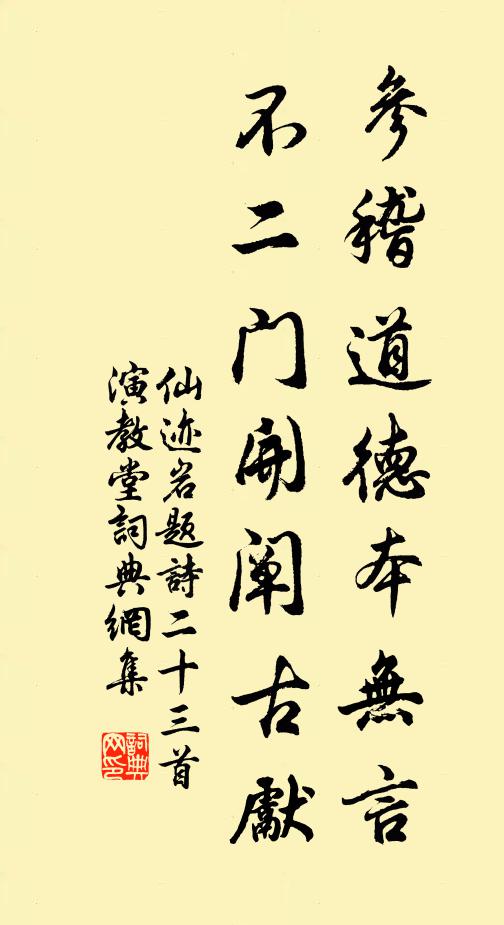 參稽道德本無言
不二门開阐古獻
仙迹岩題詩二十三首
演教堂詞典網集
詞典网印